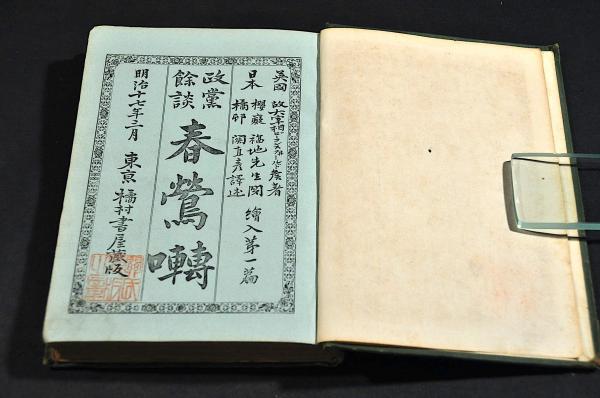 英國
大宰相
侯著
日本
櫻癡 福地先生閲
橘邨 関直彦譯述
繪入第一篇
政黨
餘談
春鶯囀
明治十七年三月 東京 橘村書屋藏版